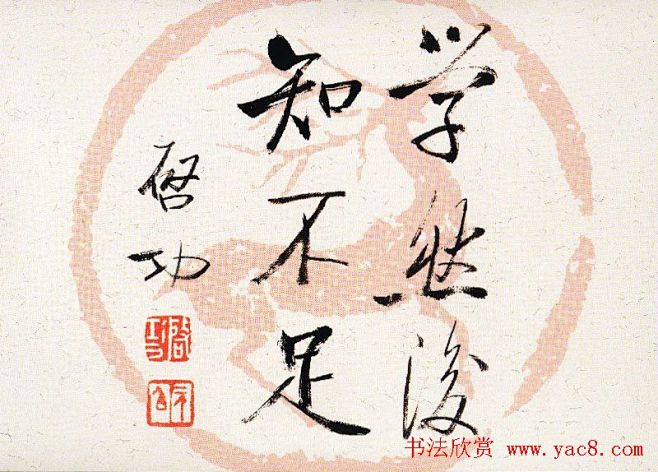 学然後
知不足
启功
启功
元白
书法欣赏 www.yac8.com